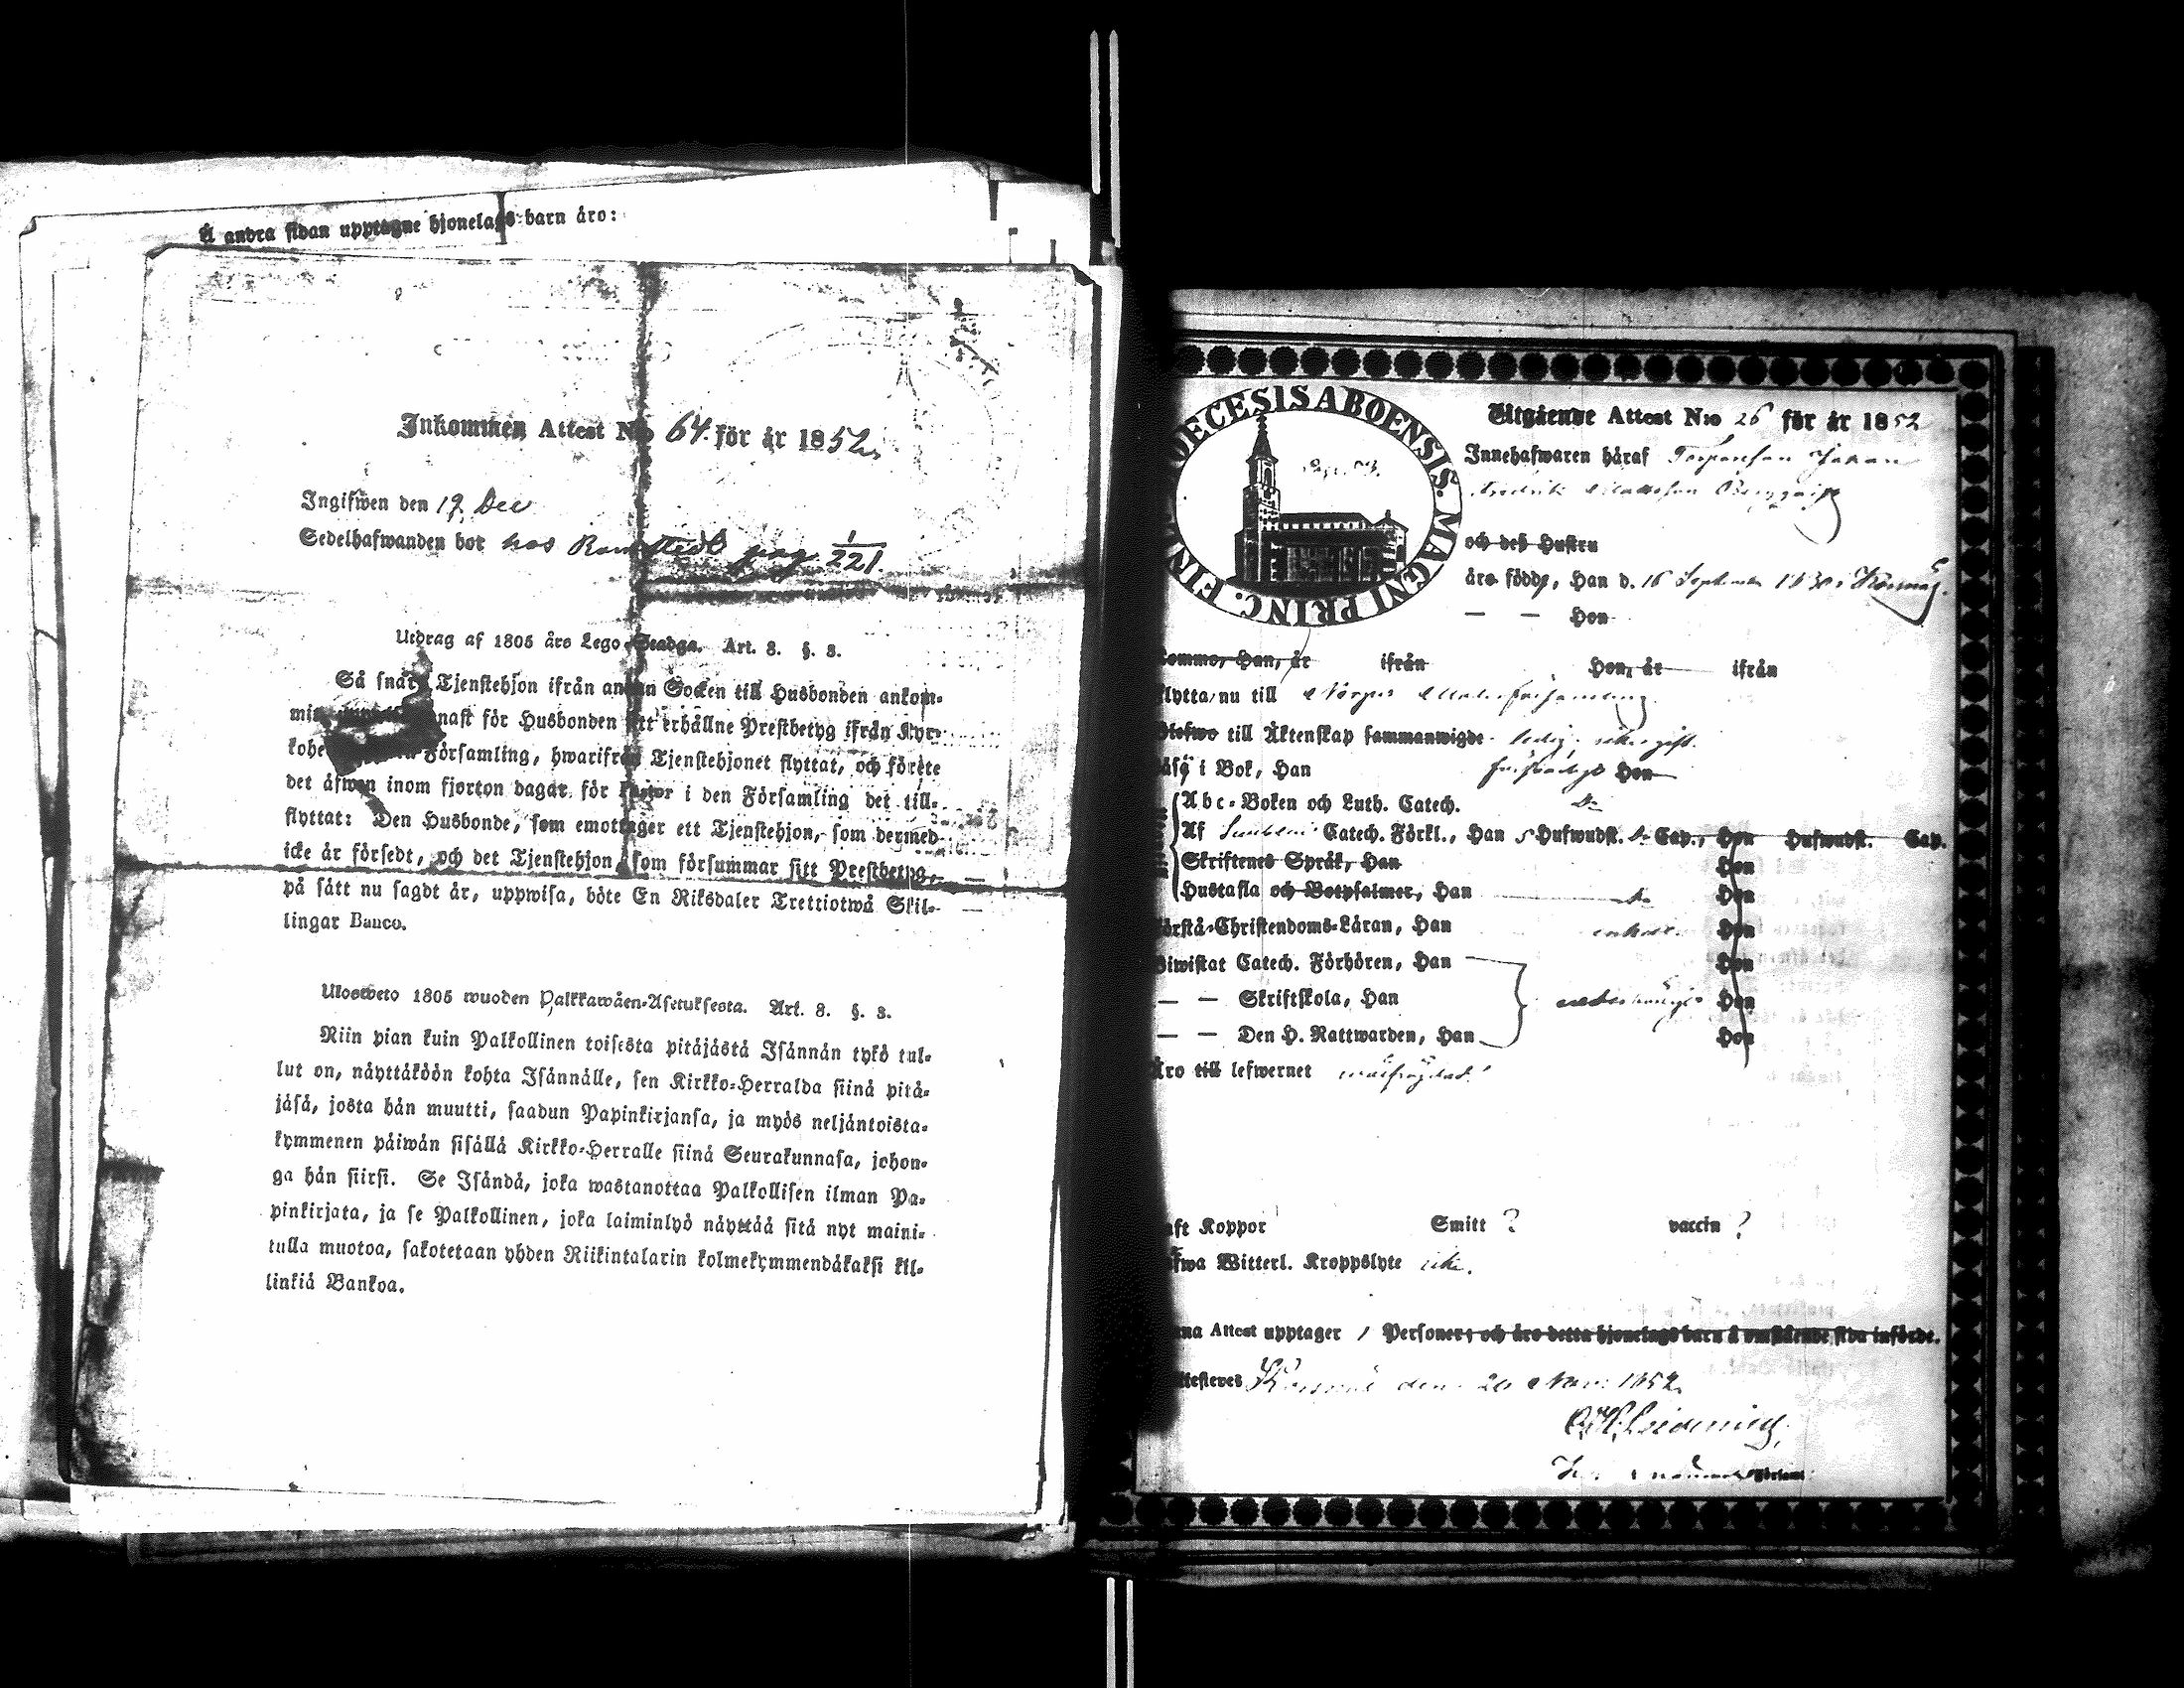 Å andra sidan upptagne hjonelags barn äro:
Inkommen Attest No 64. för år 1852.
Ingifwen den 17 Dec
Sedelhafwanden bor hos Ramstedt pag. 1/221.
Utdrag af 1805 års Lego-Stadga. Art. 8. §. 3.
Så snart Tjenstehjon ifrån annan Socken till Husbonden ankom-
nast för Husbonden sitt erhållne Prestbetyg ifrån Kyr-
kohe Församling, hwarifrån Tjenstehjonet flyttat, och förete
det äfwen inom fjorton dagar för Pastor i den Församling det till-
flyttat: Den Husbonde, som emottager ett Tjenstehjon, som dermed
icke är försedt, och det Tjenstehjon som försummar sitt Prestbetyg,
på sätt nu sagdt är, uppwisa, böte En Riksdaler Trettiotwå Skil-
lingar Banco.
Uloswето 1805 wuoden Palkkawäen-Asetuksesta. Art. 8. §. 3.
Niin pian kuin Palkollinen toisesta pitäjästä Isännän tykö tul-
lut on, näyttäköön kohta Isännälle, sen Kirkko-Herralda siinä pitä-
jäsä, josta hän muutti, saadun Papinkirjansa, ja myös neljäntoista-
kymmenen päiwän sisällä Kirkko-Herralle siinä Seurakunnasa, johon-
ga hän siirsi. Se Isändä, joka wastanottaa Palkollisen ilman Pa-
pinkirjata, ja se Palkollinen, joka laiminlyö näyttää sitä nyt maini-
tulla muotoa, sakotetaan yhden Riikintalarin kolmekymmendäkaksi kil-
linkiä Bankoa.
DECESIS ABOENSIS. MAGNI PRINC. FIN
Utgående Attest N:o 26 för år 1852
Innehafwaren häraf Johan
Fredrik Mattsson
och deß Hustru
äro födde, Han d. 16 September 1830
— — Hon
komme, Han, år ifrån Hon, år ifrån
flytta nu till församling
till Äktenskap sammanwigde ledig
i Bok, Han Hon
Abc-Boken och Luth. Catech.
Af Catech. Förkl., Han 5 Hufwudst. Cap., Hon Hufwudst. Cap.
Skriftenes Språk, Han Hon
Hustafla och Botpsalmer, Han Hon
Förstå Christendoms-Läran, Han Hon
Biwistat Catech. Förhören, Han Hon
— — Skriftskola, Han Hon
— — Den H. Nattwarden, Han Hon
Äro till lefwernet
haft Koppor Smitt ? vaccin ?
Hafwa Witterl. Kroppslyte icke.
Denna Attest upptager 1 Personer, och äro detta hjonelags barn å omstående sida införde.
Attesteres den 20 Nov: 1852.